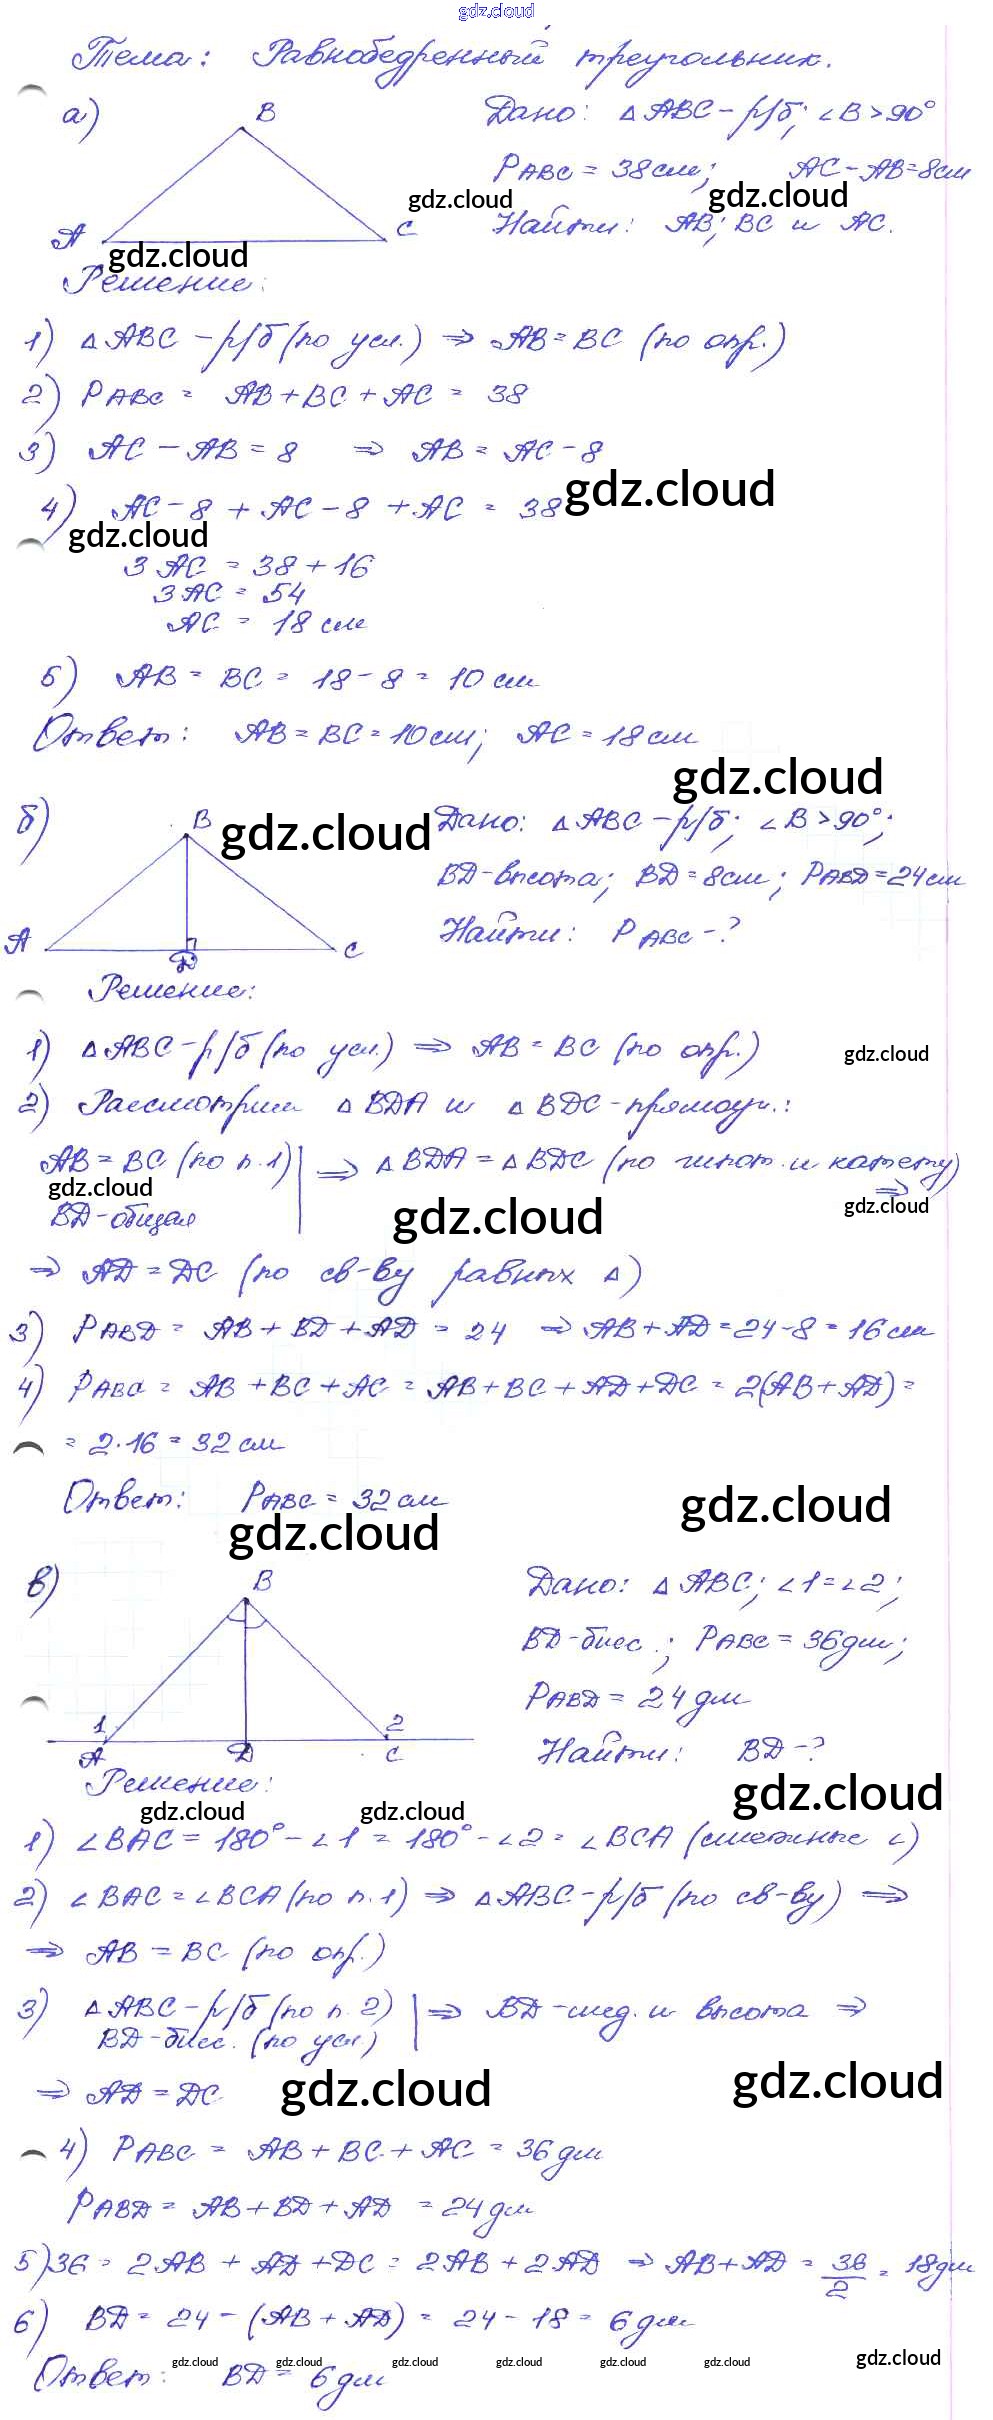 gdz.cloud
Тема: Равнобедренный треугольник.
а)
B
A
C
Дано: △ABC - р/б; ∠B > 90°
P ABC = 38 см; AC - AB = 8 см
gdz.cloud
gdz.cloud
Найти: AB; BC и AC.
gdz.cloud
Решение:
1) △ABC - р/б (по усл.) ⇒ AB = BC (по опр.)
2) P ABC = AB + BC + AC = 38
3) AC - AB = 8 ⇒ AB = AC - 8
gdz.cloud
4) AC - 8 + AC - 8 + AC = 38
gdz.cloud
3 AC = 38 + 16
3 AC = 54
AC = 18 см
5) AB = BC = 18 - 8 = 10 см
Ответ: AB = BC = 10 см; AC = 18 см
gdz.cloud
б)
B
A
D
C
gdz.cloud
Дано: △ABC - р/б; ∠B > 90°;
BD - высота; BD = 8 см; P ABD = 24 см
Найти: P ABC - ?
Решение:
1) △ABC - р/б (по усл.) ⇒ AB = BC (по опр.)
gdz.cloud
2) Рассмотрим △BDA и △BDC - прямоуг.:
AB = BC (по п. 1) | ⇒ △BDA = △BDC (по гипот. и катету) ⇒
gdz.cloud
BD - общая
gdz.cloud
gdz.cloud
⇒ AD = DC (по св-ву равных △)
3) P ABD = AB + BD + AD = 24 ⇒ AB + AD = 24 - 8 = 16 см
4) P ABC = AB + BC + AC = AB + BC + AD + DC = 2(AB + AD) =
= 2·16 = 32 см
Ответ: P ABC = 32 см
gdz.cloud
gdz.cloud
в)
B
1
2
A
D
C
Дано: △ABC; ∠1 = ∠2;
BD - бисс.; P ABC = 36 дм;
P ABD = 24 дм
Найти: BD - ?
Решение:
gdz.cloud
gdz.cloud
gdz.cloud
1) ∠BAC = 180° - ∠1 = 180° - ∠2 = ∠BCA (смежные ∠)
2) ∠BAC = ∠BCA (по п. 1) ⇒ △ABC - р/б (по св-ву) ⇒
⇒ AB = BC (по опр.)
3) △ABC - р/б (по п. 2) | ⇒ BD - мед. и высота ⇒
BD - бисс. (по усл.)
⇒ AD = DC
gdz.cloud
gdz.cloud
4) P ABC = AB + BC + AC = 36 дм
P ABD = AB + BD + AD = 24 дм
5) 36 = 2AB + AD + DC = 2AB + 2AD ⇒ AB + AD = 36/2 = 18 дм
6) BD = 24 - (AB + AD) = 24 - 18 = 6 дм
gdz.cloud gdz.cloud gdz.cloud gdz.cloud gdz.cloud gdz.cloud gdz.cloud
Ответ: BD = 6 дм